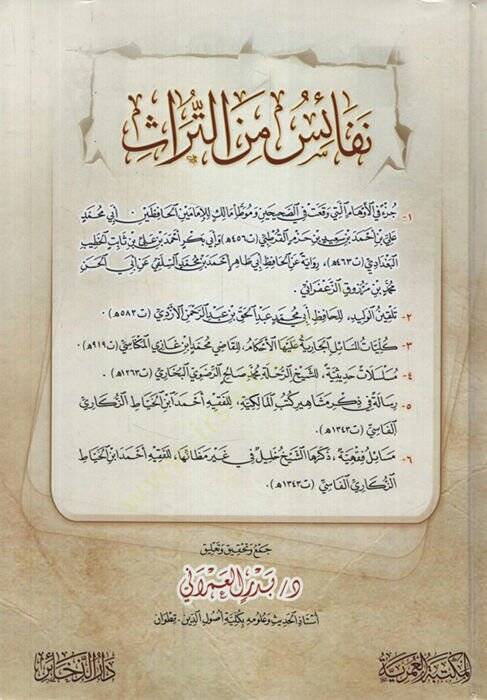 نفائس من التراث
١- جزء في الأوهام التي وقعت في الصحيحين وموطأ مالك للإمامين الحافظين: أبي محمد
علي بن أحمد بن سعيد بن حزم القرطبي (ت٤٥٦هـ) وأبي بكر أحمد بن علي بن ثابت الخطيب
البغدادي (ت٤٦٣هـ)، رواية عن الحافظ أبي طاهر أحمد بن محمد السلفي عن أبي الحسن
محمد بن مرزوق الزعفراني.
٢- تلقين الوليد، للحافظ أبي محمد عبد الحق بن عبد الرحمن الأزدي (ت٥٨٢هـ).
٣- كليات المسائل الجارية عليها الأحكام، للقاضي محمد ابن غازي المكناسي (ت٩١٩هـ).
٤- مسلسلات حديثية، للشيخ الرحلة محمد صالح الرضوي البخاري (ت١٢٦٣هـ).
٥- رسالة في ذكر مشاهير كتب المالكية، للفقيه أحمد ابن الخياط الزكاري
الفاسي (ت١٣٤٣هـ).
٦- مسائل فقهية، ذكرها الشيخ خليل في غير مظانها، للفقيه أحمد ابن الخياط
الزكاري الفاسي (ت١٣٤٣هـ).
جمع وتحقيق وتعليق
د/ بدر العمراني
أستاذ الحديث وعلومه بكلية أصول الدين - تطوان
المكتبة العمرية
دار الذخائر